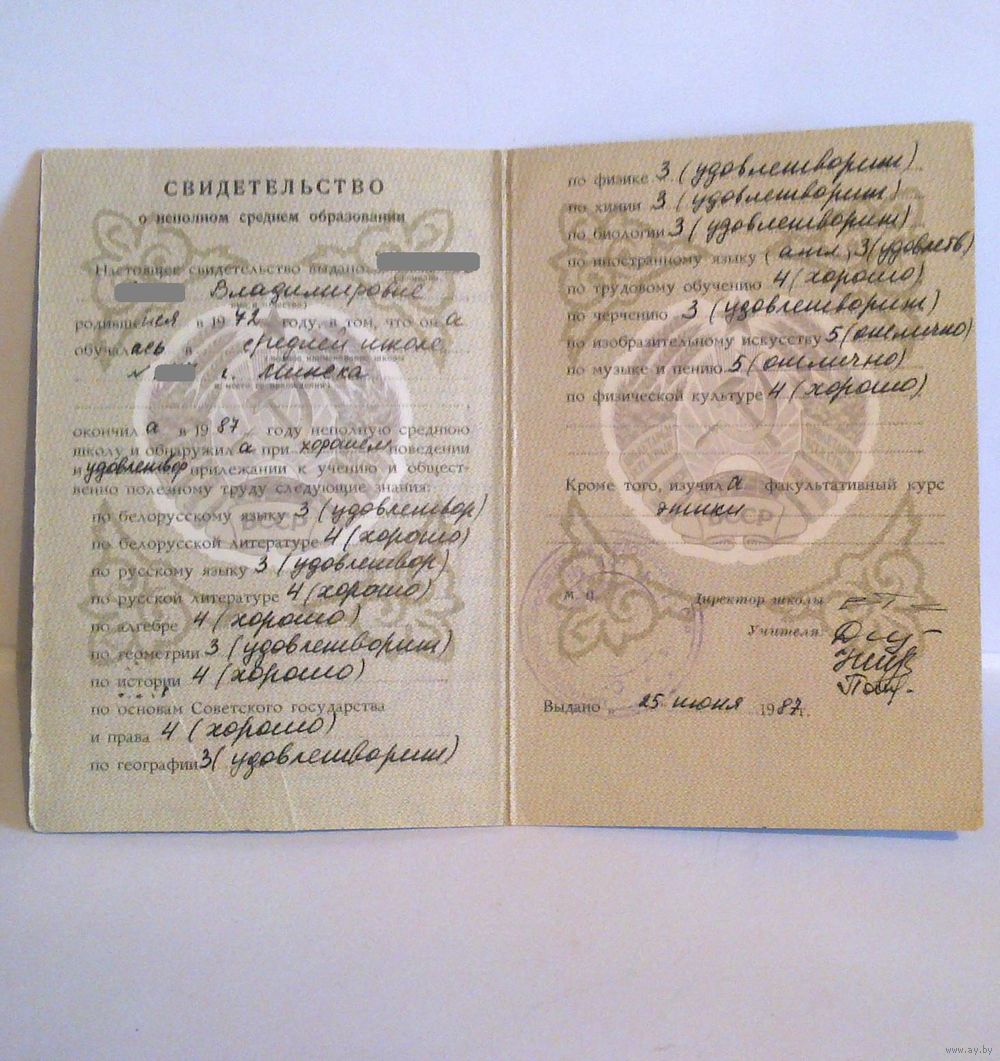 СВИДЕТЕЛЬСТВО
о неполном среднем образовании
Настоящее свидетельство выдано
Владимировне
родившейся в 1972 году, в том, что он а
обучалась в средней школе
№ г. Минска
окончил а в 1987 году неполную среднюю
школу и обнаружил а при хорошем поведении
и удовлетвор прилежании к учению и общест-
венно полезному труду следующие знания:
по белорусскому языку 3 (удовлетвор)
по белорусской литературе 4 (хорошо)
по русскому языку 3 (удовлетвор)
по русской литературе 4 (хорошо)
по алгебре 4 (хорошо)
по геометрии 3 (удовлетворит)
по истории 4 (хорошо)
по основам Советского государства
и права 4 (хорошо)
по географии 3 (удовлетворит)
по физике 3 (удовлетворит)
по химии 3 (удовлетворит)
по биологии 3 (удовлетворит)
по иностранному языку (англ) 3 (удовлетв)
по трудовому обучению 4 (хорошо)
по черчению 3 (удовлетворит)
по изобразительному искусству 5 (отлично)
по музыке и пению 5 (отлично)
по физической культуре 4 (хорошо)
Кроме того, изучил а факультативный курс
этики
БССР
М. П.
Директор школы
Учителя:
Выдано 25 июня 1987 г.
www.ay.by